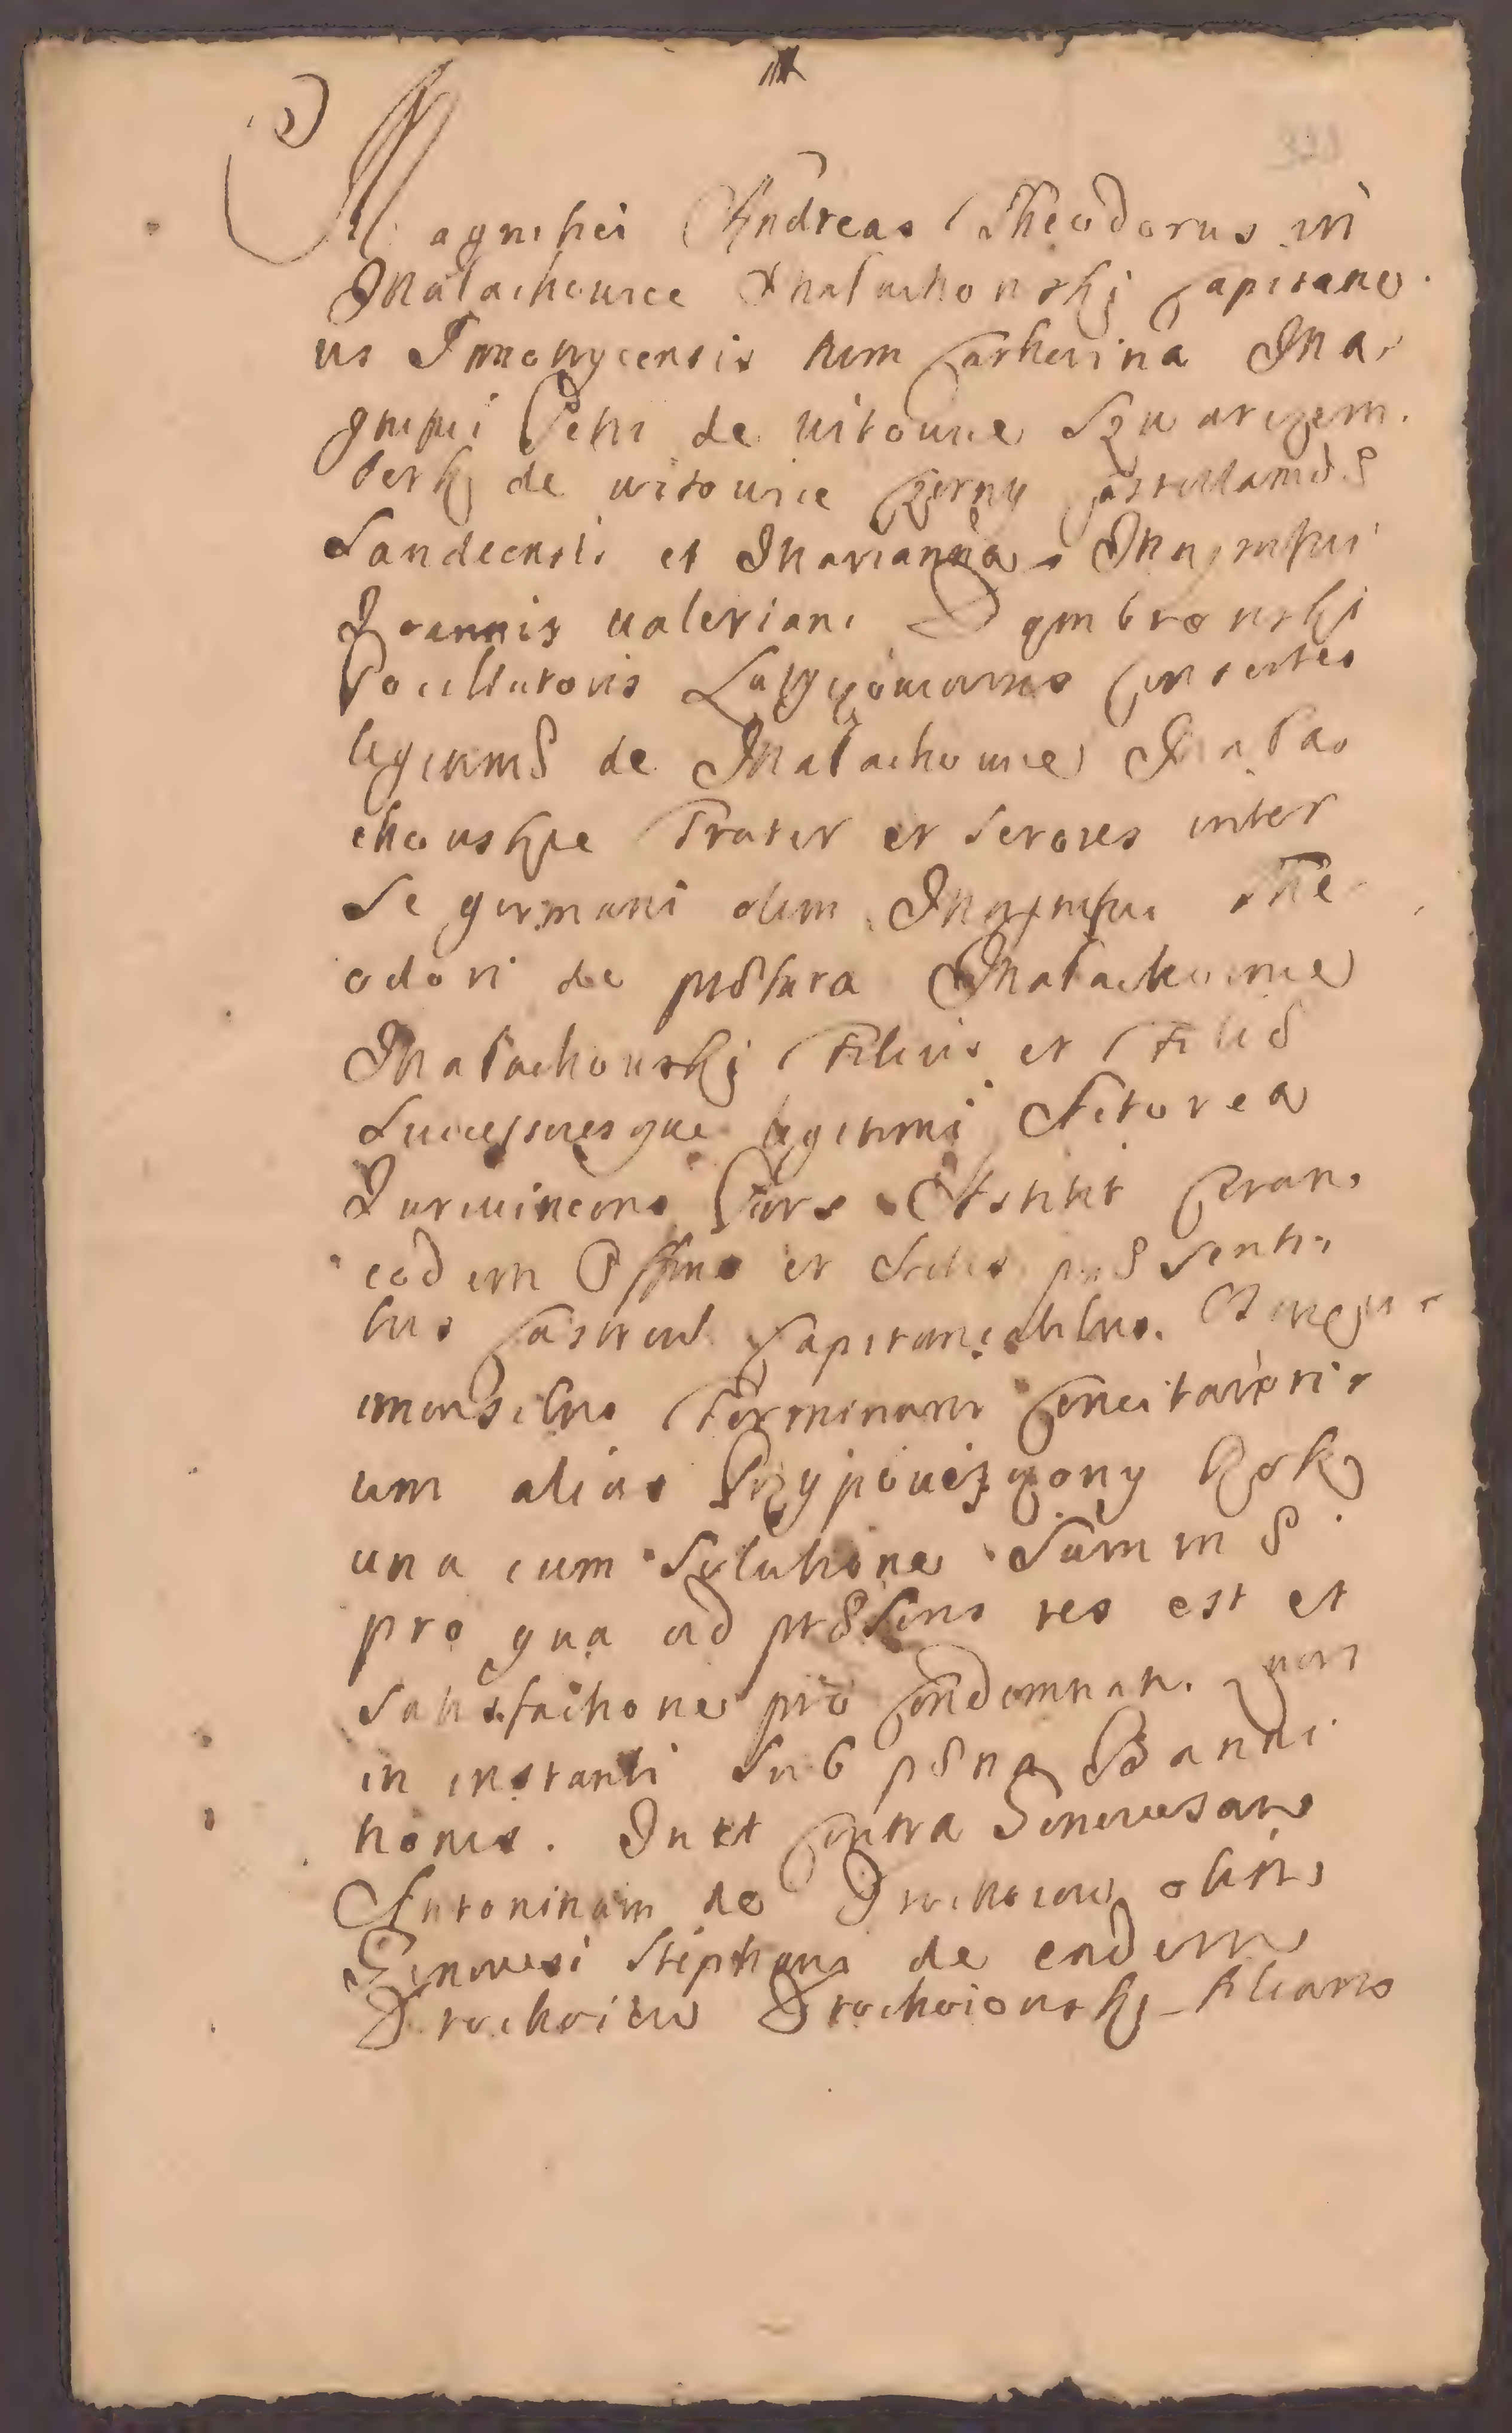 Magnifici Andreas Theodorus in
Malachowice Malachowskj Capitane
us Cum Catherina Ma
gnifici Petri de Witowice Szwarczem
berk de witowice Czerny Castellanidæ
Sandecensis et Marianna Magnifici
Joannis valeriani Dąmbrowski
Pocillatoris Consortes
legitimæ de Malachowice Mala
chowskie Frater et Sorores inter
Se germani olim Magnifici The
odori de præfata Malachowice
Malachowskj Filius et Filiæ
Successoresque legitimi Actorea
Jurevincens Pars Astitit Coram
eodem Officio et Actis præsenti
bus Castren Capitanealibus.
Terminum Concitatori
um alias Przypowieszczony Rok
una cum Solutione Summæ
pro qua ad præsens res est et
Satisfactione pro Condemnat.
in instanti Sub pæna Banni
tionis. In et Contra Generosam
Antoninam de Drochoiow olim
Generosi Stephani de eadem
Drochoiow Drochoiowskj Filiam